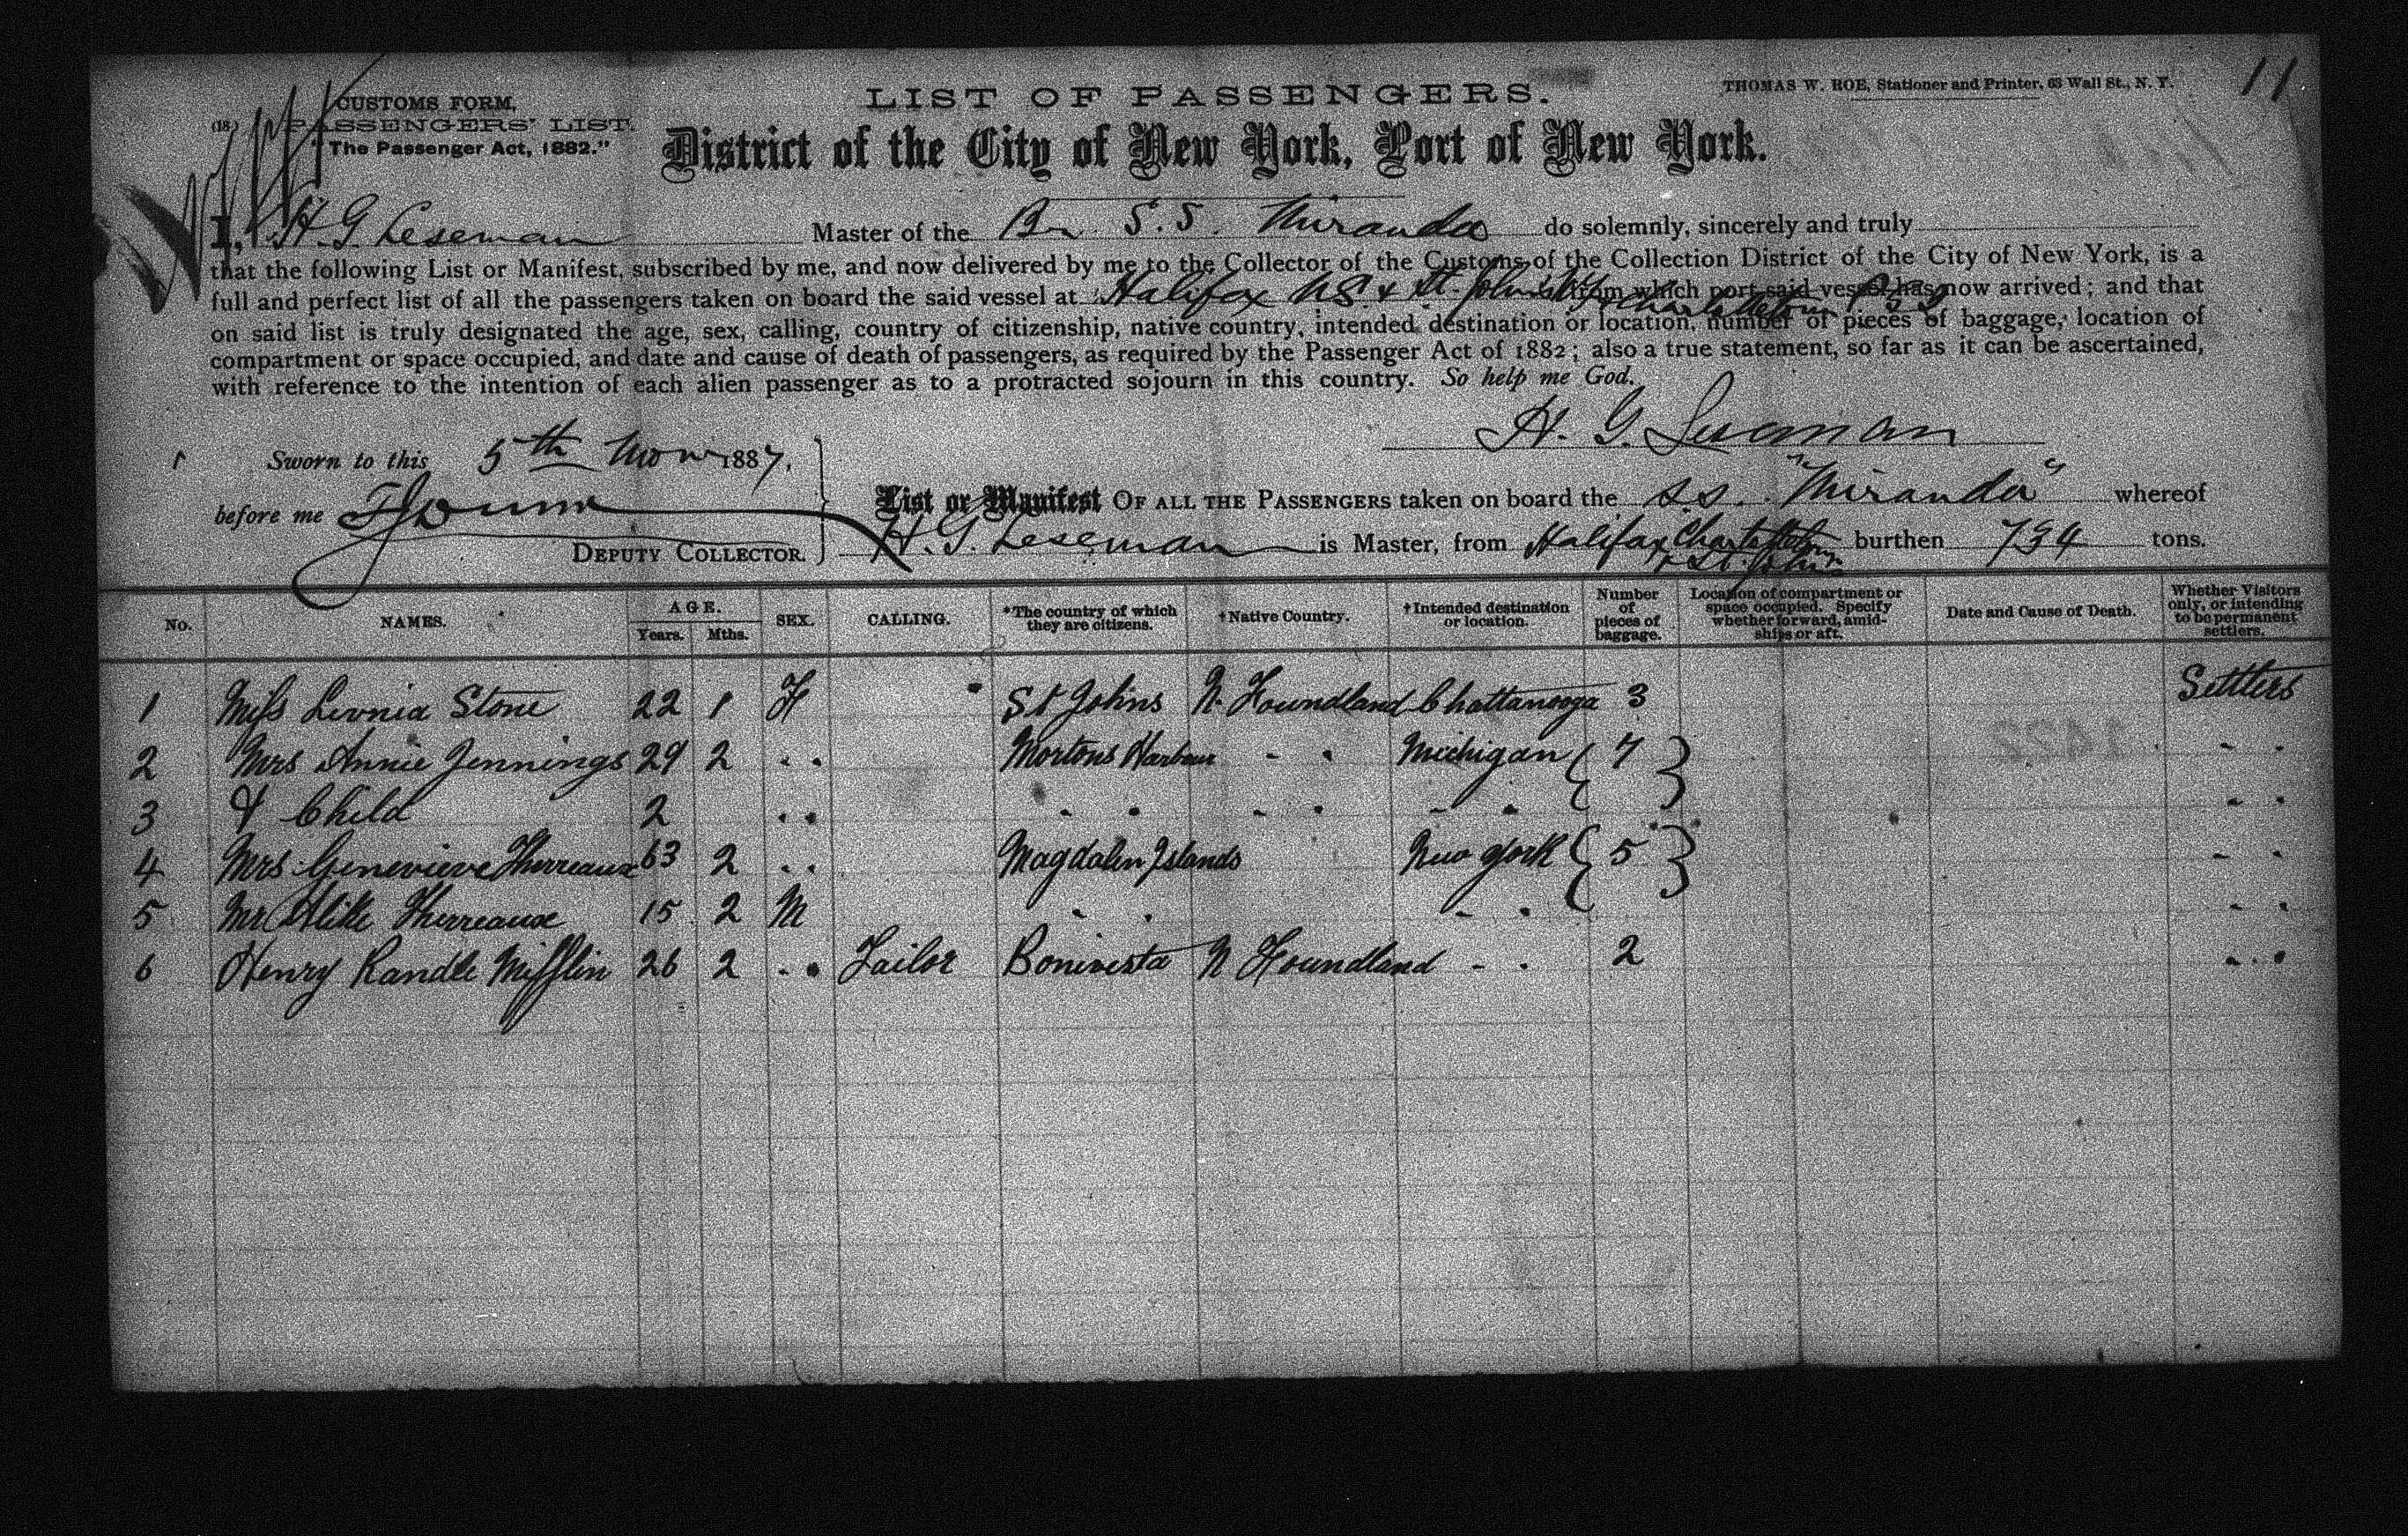 LIST OF PASSENGERS.
THOMAS W. ROE, Stationer and Printer, 63 Wall St., N. Y.
11
CUSTOMS FORM,
PASSENGERS' LIST.
"The Passenger Act, 1882."
District of the City of New York, Port of New York.
I, H. G. Leseman Master of the Br S.S. Miranda do solemnly, sincerely and truly
that the following List or Manifest, subscribed by me, and now delivered by me to the Collector of the Customs of the Collection District of the City of New York, is a
full and perfect list of all the passengers taken on board the said vessel at Halifax NS. & St. Johns from which port said vessel has now arrived; and that
Charlottetown P E I
on said list is truly designated the age, sex, calling, country of citizenship, native country, intended destination or location, number of pieces of baggage, location of
compartment or space occupied, and date and cause of death of passengers, as required by the Passenger Act of 1882; also a true statement, so far as it can be ascertained,
with reference to the intention of each alien passenger as to a protracted sojourn in this country. So help me God.
H. G. Leseman
Sworn to this 5th 1887,
before me
DEPUTY COLLECTOR.
List or Manifest OF ALL THE PASSENGERS taken on board the s.s. "Miranda" whereof
H. G. Leseman is Master, from Halifax Charlottetown & St. Johns burthen 734 tons.
No. NAMES. AGE. Years. Mths. SEX. CALLING. *The country of which they are citizens. †Native Country. †Intended destination or location. Number of pieces of baggage. Location of compartment or space occupied. Specify whether forward, amidships or aft. Date and Cause of Death. Whether Visitors only, or intending to be permanent settlers.
1 Miss Levnia Stone 22 1 F St Johns N. Foundland Chattanooga 3 Settlers
2 Mrs Annie Jennings 29 2 " Mortons Harbour " " Michigan 4 " "
3 & Child 2 " " " " " " " " "
4 Mrs Genevieve Therreaux 63 2 " Magdalen Islands New York 5 " "
5 Mr Alike Therreaux 15 2 M " " " " " "
6 Henry Randle Mifflin 26 2 " Tailor Bonivista N Foundland " " 2 " "